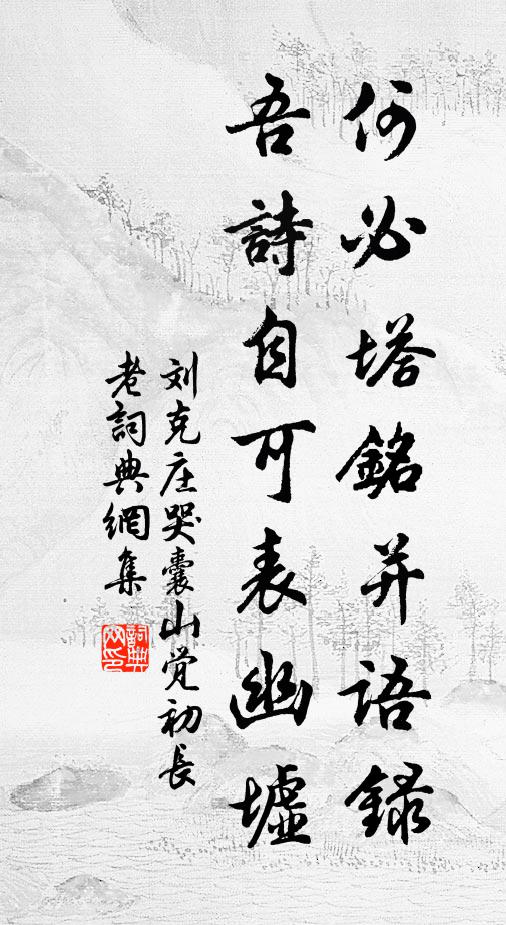 何必塔銘并语録
吾詩自可表幽墟
刘克庄哭囊山觉初長
老詞典網集
詞典